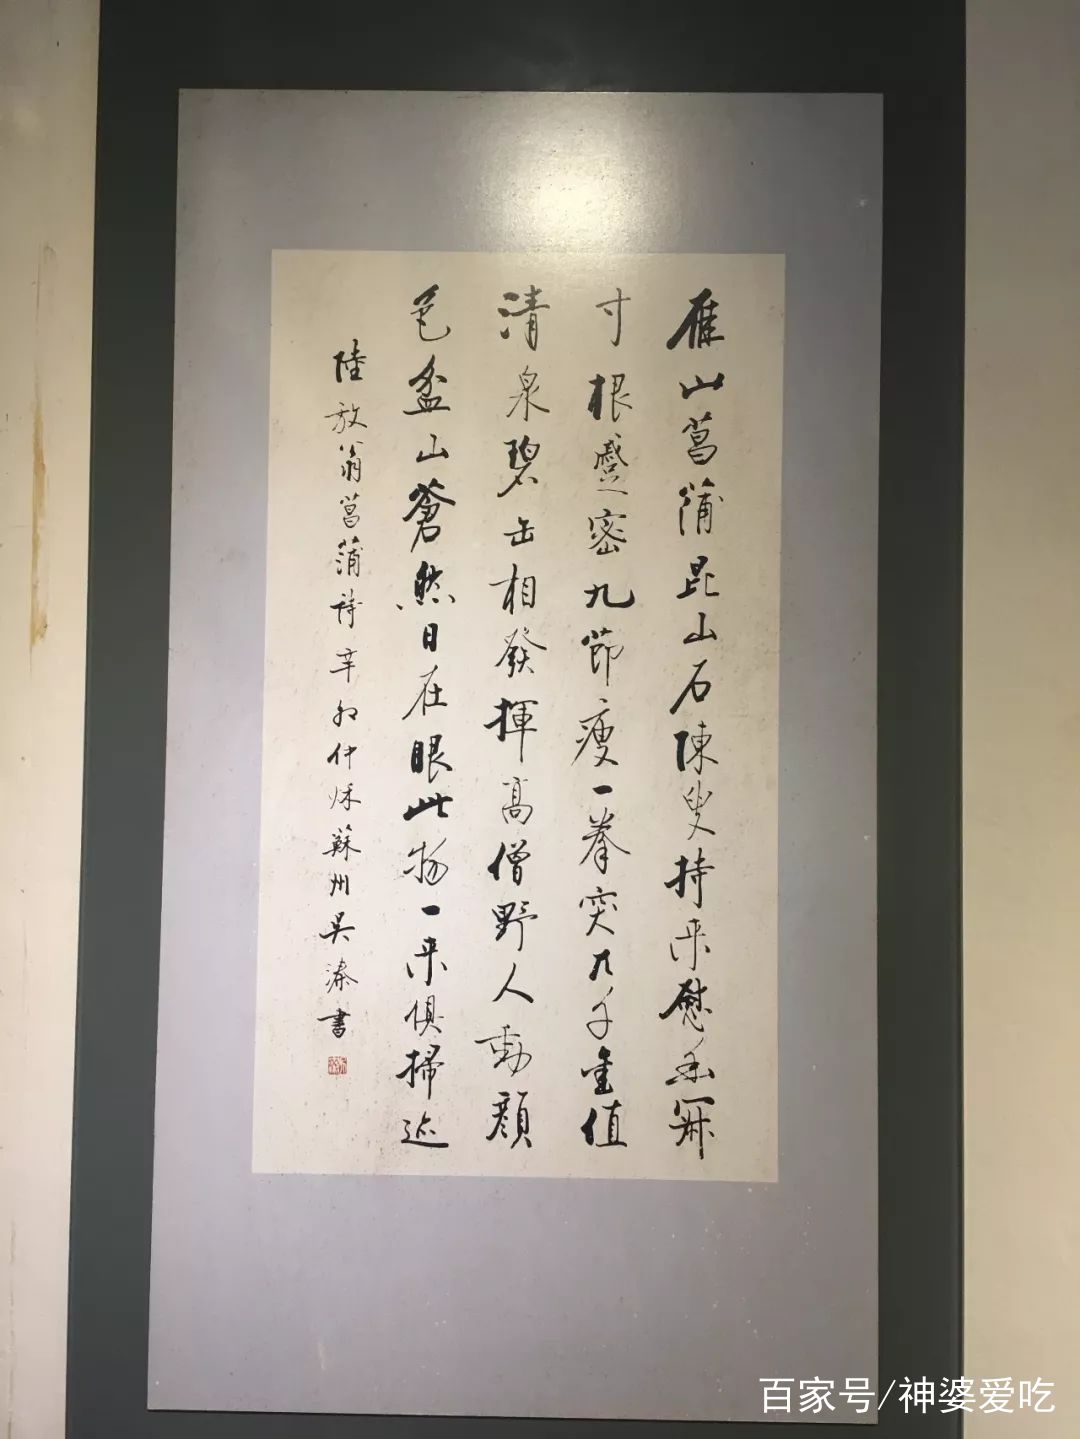 雁山菖蒲昆山石陳叟持来慰幽寂
寸根蹙密九節瘦一拳突兀千金值
清泉碧缶相發揮高僧野人動顔
色盆山蒼然日在眼此物一来俱掃迹
陸放翁菖蒲詩辛卯仲秌蘇州吴溱書
百家号/神婆爱吃